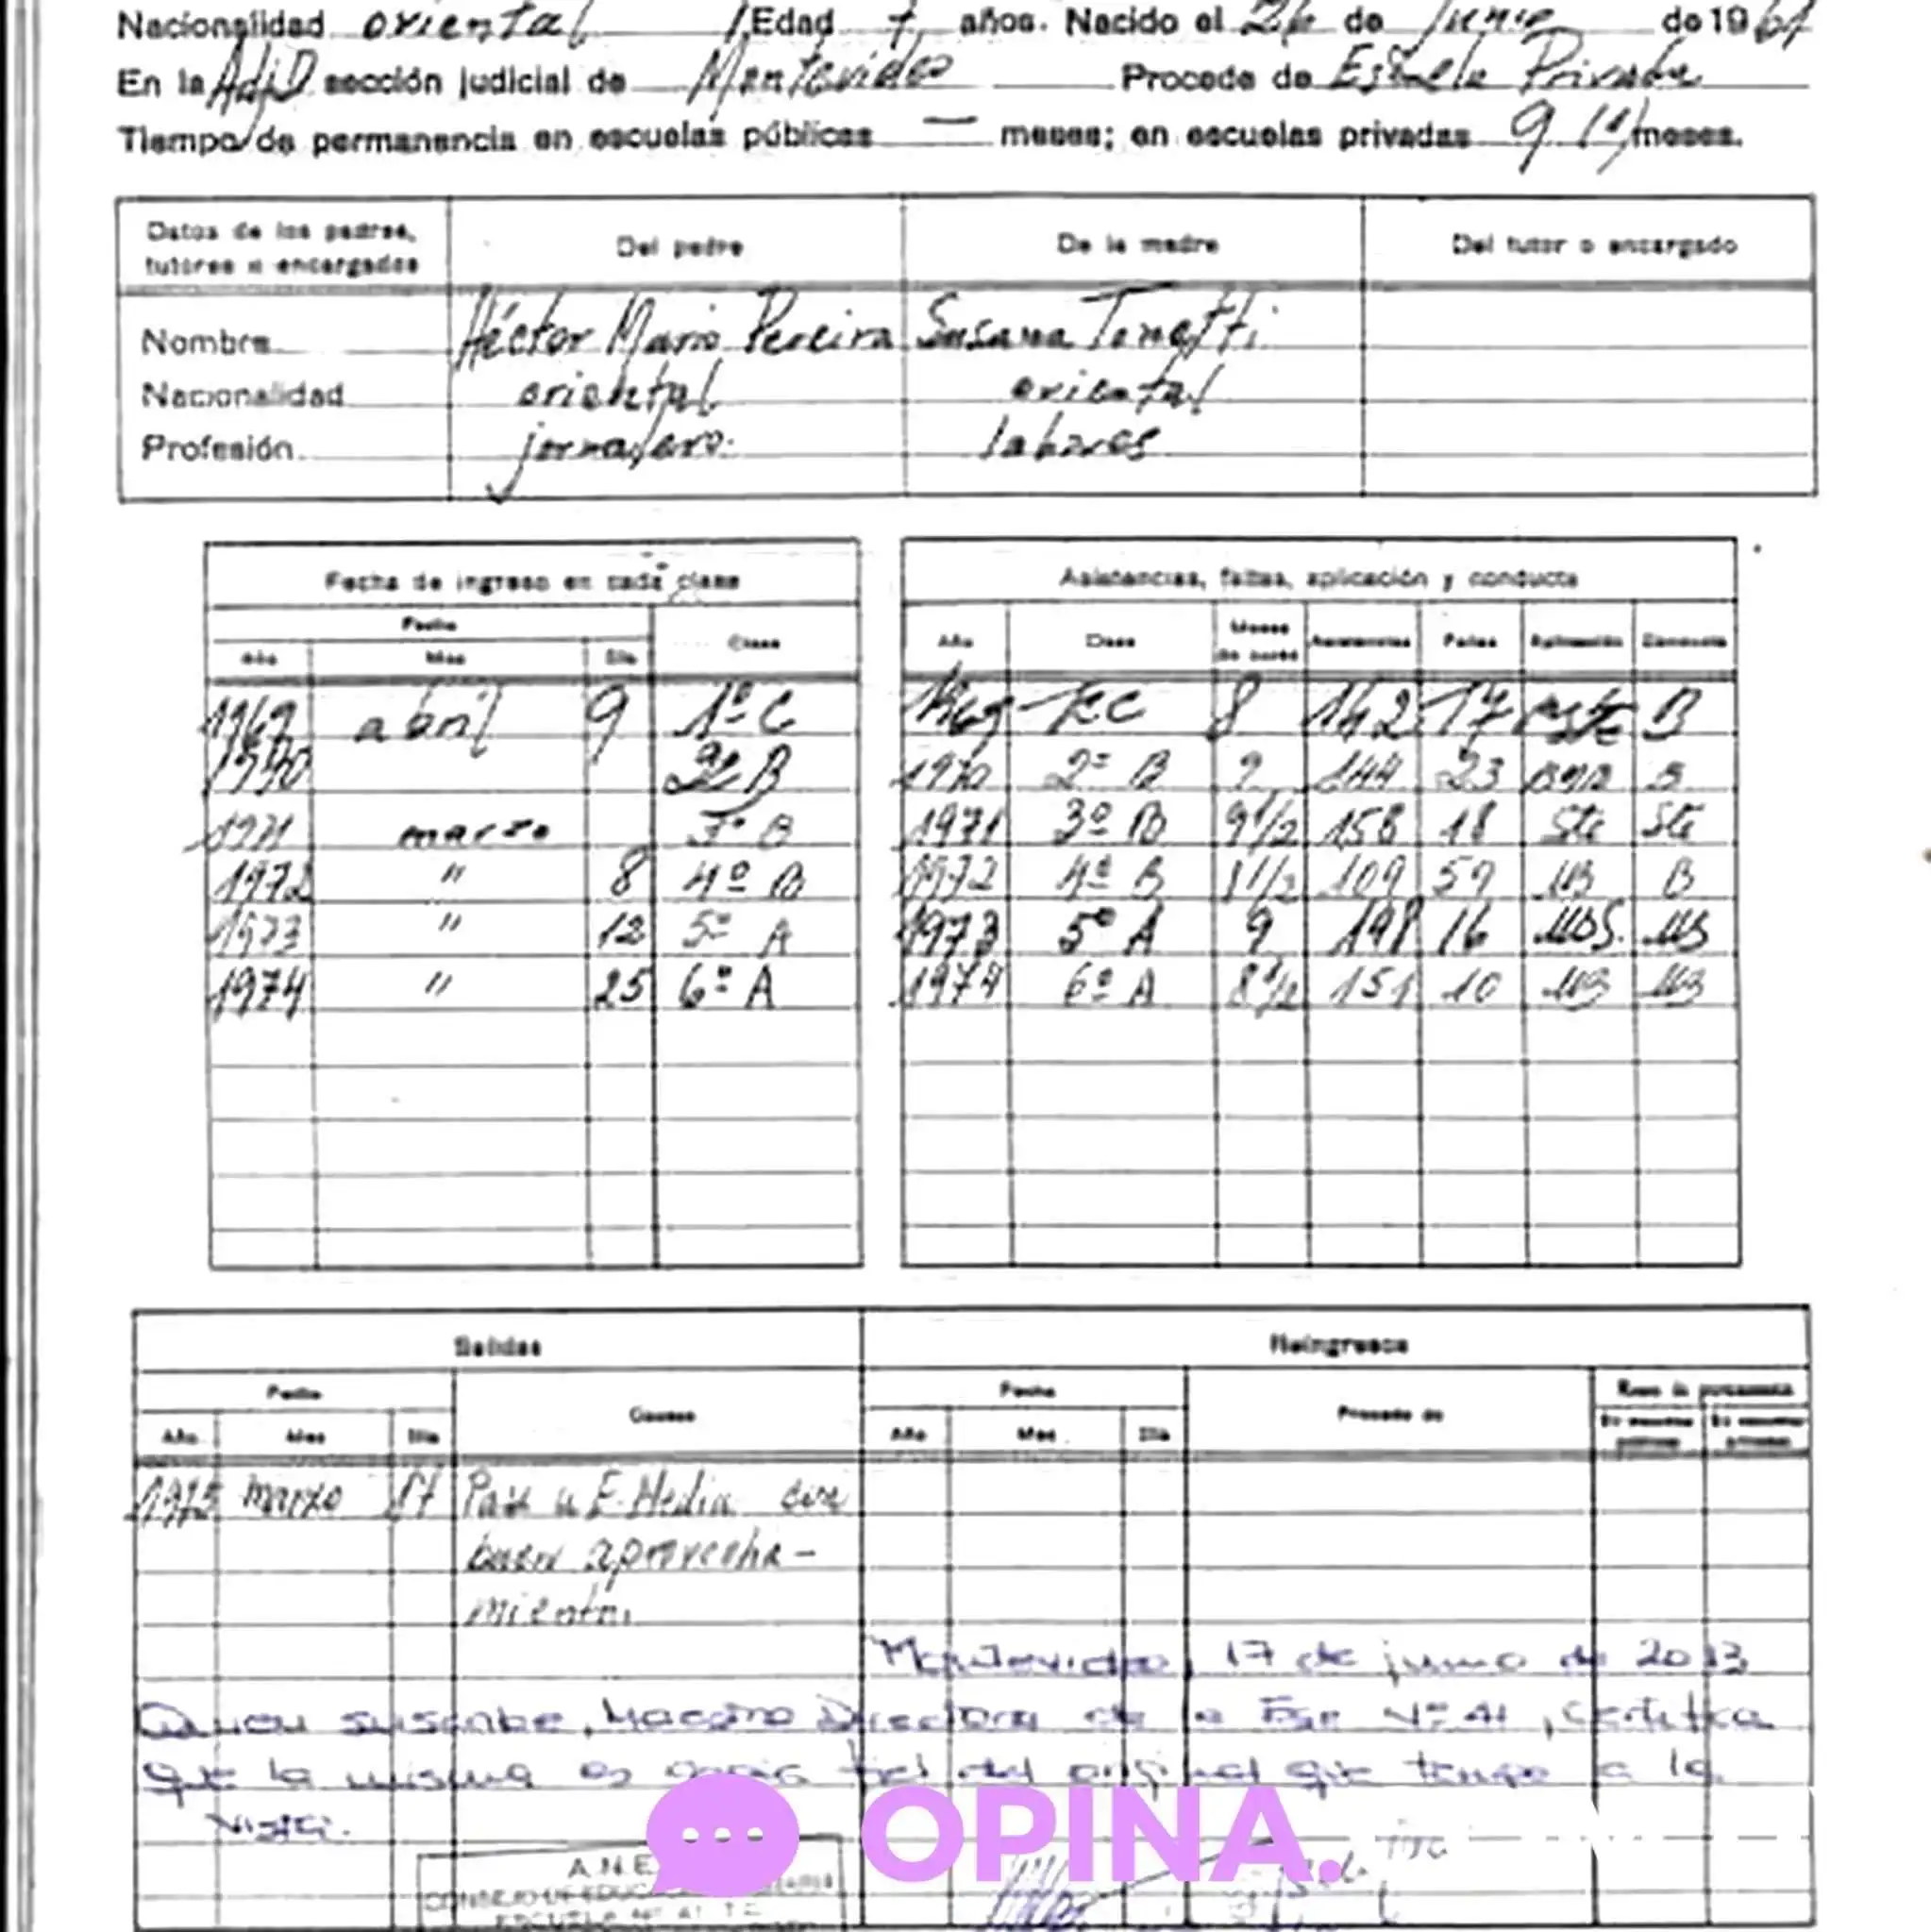 Nacionalidad oriental Edad 7 años. Nacido el 26 de Junio de 1961
En la sección judicial de Montevideo Procede de Escuela Privada
Tiempo de permanencia en escuelas públicas — meses; en escuelas privadas 9 meses.
Datos de los padres, Del padre De la madre Del tutor o encargado
tutores o encargados
Nombre Héctor Mario Pereira Susana
Nacionalidad oriental oriental
Profesión jornalero. labores
Fecha de ingreso en cada clase Asistencias, faltas, aplicación y conducta
Fecha Clase Año Clase Meses de curso Asistencias Faltas Aplicación Conducta
Año Mes Día
1969 abril 9 1º C 1969 8 142 17 B
1970 2º B 1970 2º B 144 23 B
1971 marzo 3º B 1971 3º B 9 1/2 158 18 Ste Ste
1972 " 8 4º B 1972 4º B 8 1/2 109 59 MB B
1973 " 12 5º A 1973 5º A 9 16 MBS. MB
1974 " 25 6º A 1974 6º A 8 1/2 151 10 MB MB
Salidas Reingresos
Fecha Causas Fecha Procede de
Año Mes Día Año Mes Día
1975 marzo 17 Pasa a E. Media con
buen aprovecha-
miento.
Montevideo, 17 de junio de 2013
Quien suscribe, Maestra Directora de la Esc Nº 41, certifica
que la misma es copia fiel del original que tengo a la
vista.
OPINA.
A.N.E.